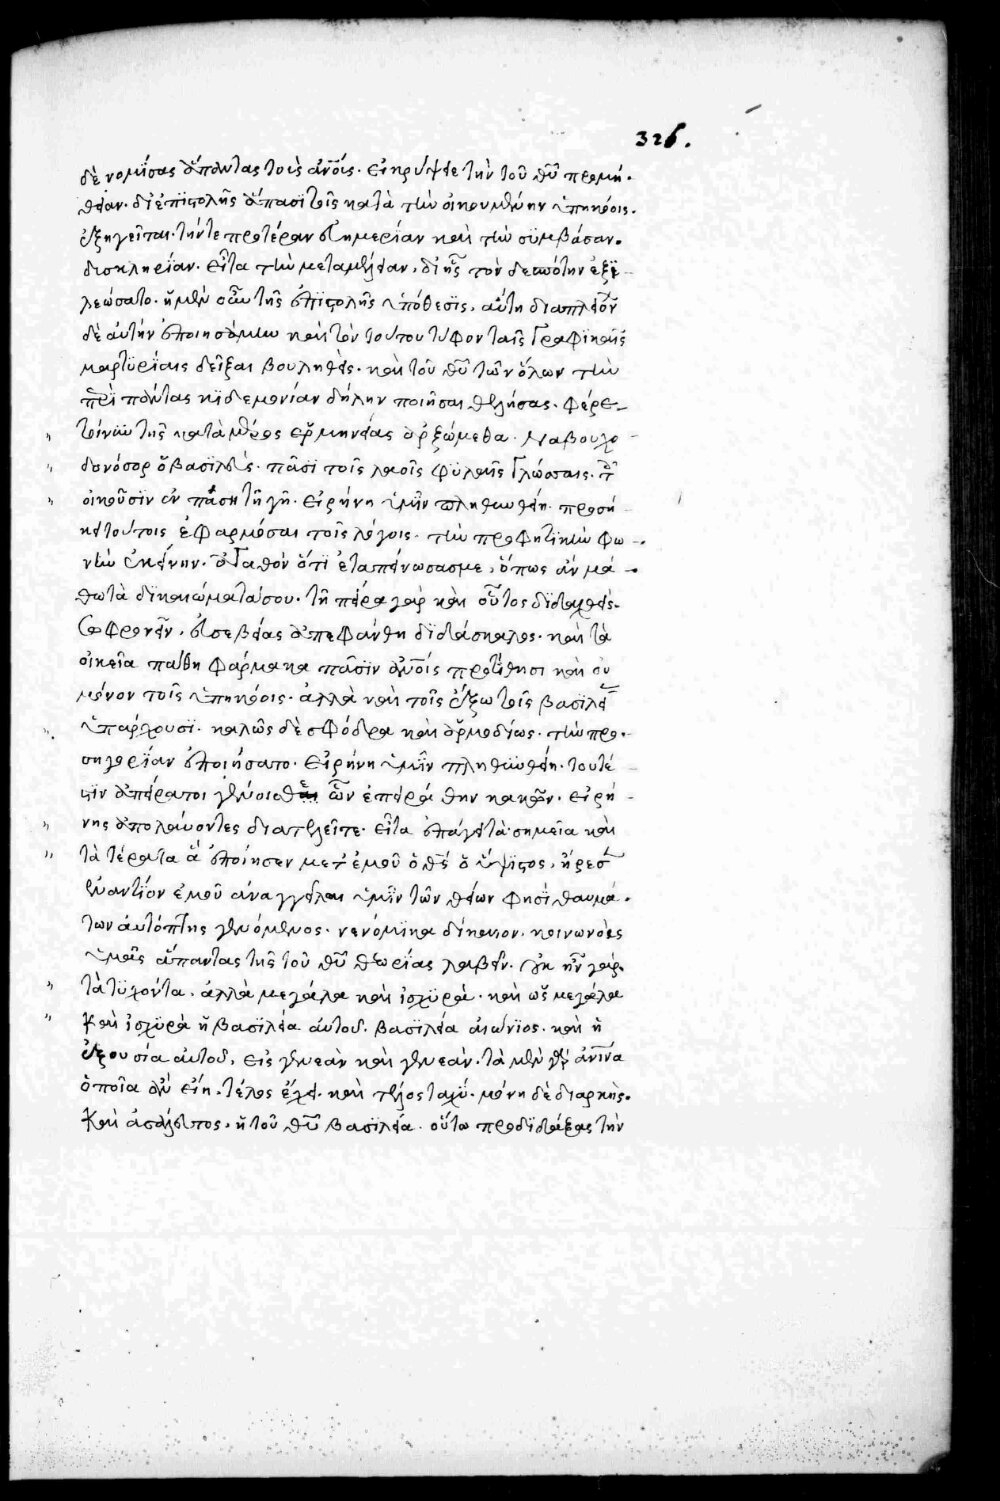 326.
δὲ νομίσας ἅπαντας τοὺς ἀνο̅ις. ἐκηρυψε τὴν τοῦ θυ̅ προμή-
θειαν. δι' ἐπιϊστολῆς ἅπασι τοῖς κατὰ τὴν οἰκουμένην ὑπηκόοις.
ἐξηγεῖται. τήν τε προτέραν εὐημερίαν καὶ τὴν σϋμβάσαν.
δισκληρίαν. εἶτα τὴν μεταμέλειαν, δι' ἧς τὸν δεσπότην ἐξϊ-
λεώσατο. ἡ μὲν οὖν τῆς ἐπιστολῆς ὑπόθεσϊς, αὕτη διαπλέον
δὲ αὐτὴν ἐποιησάμην καὶ τὸν τούτου τύφον ταῖς γραφικαῖς
μαρτϋρίαις δεῖξαι βουληθείς. καὶ τοῦ θυ̅ τῶν ὅλων τὴν
περὶ πάντας κϊδεμονίαν δήλην ποιῆσαι θελήσας. φέρε
τοίνυν τῆς κατὰ μέρος ἑρμηνείας ἀρξώμεθα. Ναβουχο-
δονόσορ ὁ βασϊλεὺς. πᾶσϊ τοῖς λαοῖς φϋλαῖς γλώσσαις. τοῖς
οἰκοῦσϊν ἐν πάση τῆ γῆ. εἰρήνη ὑμῖν πληθυνθείη. προσή-
κει τούτοις ἐφαρμόσαι τοῖς λόγοις. τὴν προφητϊκὴν φω-
νὴν ἐκείνην. ἀγαθὸν ὅτϊ ἐταπείνωσασμε, ὅπως ἂν μά-
θω τὰ δϊκαιώματάσου. τῆ πείρα γὰρ καὶ οὗτος διδαχθεὶς.
σωφρονεῖν, εὐσεβείας ἀπεφάνθη διδάσκαλος. καὶ τὰ
οἰκεῖα πάθη φάρμακα πᾶσϊν ἀνο̅ις προτίθησι καὶ οὐ
μόνον τοῖς ὑπηκόοις. ἀλλὰ καὶ τοῖς ἔξω τῆς βασϊλείας
ὑπάρχουσϊ. καλῶς δὲ σφόδρα καὶ ἁρμοδίως. τὴν προ-
σηγορίαν ἐποιήσατο. εἰρήνη ὑμῖν πληθυνθείη. τουτέ-
στϊν ἀπείρατοι γένοισθε ὧν ἐπειράθην κακῶν. εἰρή-
νης ἀπολαύοντες διατελεῖτε. εἶτα ἐπάγει τὰ σημεῖα καὶ
τὰ τέρατα ἃ ἐποίησεν μετ' ἐμοῦ ὁ θς̅ ὁ ὕψϊστος, ἤρεσεν
ἐναντίον ἐμοῦ ἀναγγεῖλαι ὑμῖν τῶν θείων φησϊ θαυμά-
των αὐτόπτης γενόμενος. νενόμικα δίκαιον. κοινωνοὺς
ὑμᾶς ἅπαντας τῆς τοῦ θυ̅ θεωρίας λαβεῖν. οὐκ ἦν γὰρ
τὰ τϋχόντα. ἀλλὰ μεγάλα καὶ ἰσχϋρά. καὶ ὡς μεγάλα
καὶ ἰσχϋρὰ ἡ βασϊλεία αὐτοῦ. βασϊλεία αἰώνϊος. καὶ ἡ
ἐξουσία αὐτοῦ, εἰς γενεὰν καὶ γενεάν. τὰ μὲν γὰρ ἀνι̅να
ὁποῖα ἂν εἴη. τέλος ἔχει. καὶ τέλος ταχύ. μόνη δὲ διαρκὴς.
καὶ ἀσάλευτος. ἡ τοῦ θυ̅ βασϊλεία. οὕτω προδϊδάξας τὴν